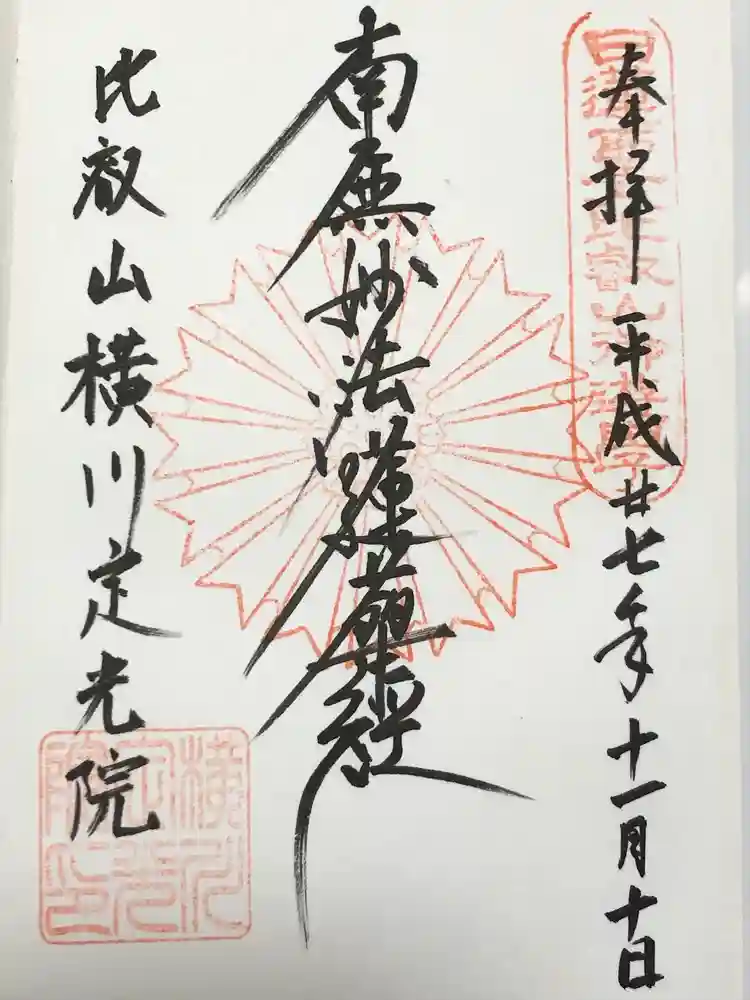 奉拝 平成廿七年十一月十日
南無妙法蓮華經
比叡山横川定光院
横川定光院印